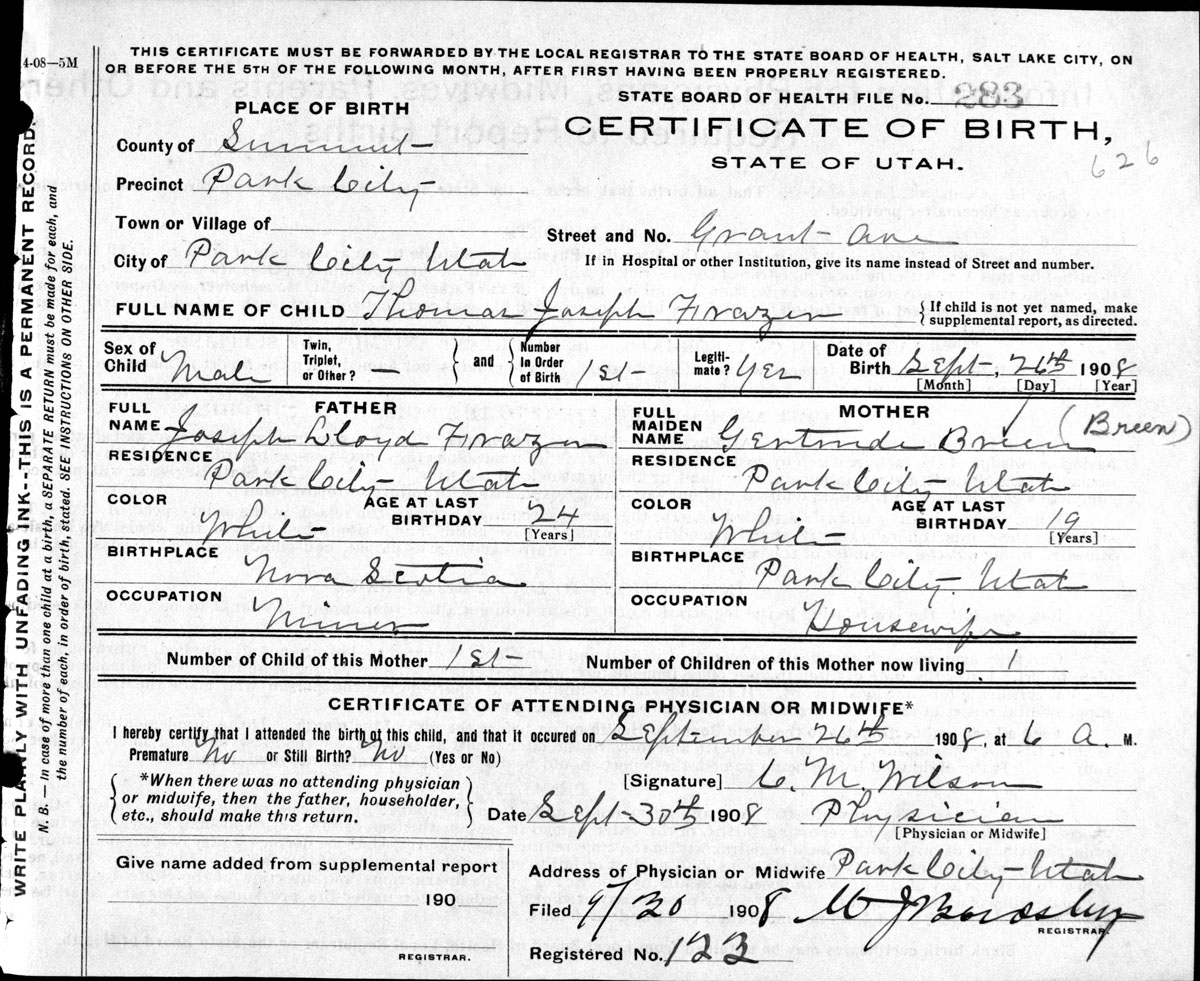 4-08—5M
THIS CERTIFICATE MUST BE FORWARDED BY THE LOCAL REGISTRAR TO THE STATE BOARD OF HEALTH, SALT LAKE CITY, ON
OR BEFORE THE 5TH OF THE FOLLOWING MONTH, AFTER FIRST HAVING BEEN PROPERLY REGISTERED.
STATE BOARD OF HEALTH FILE No. 283
PLACE OF BIRTH
CERTIFICATE OF BIRTH,
STATE OF UTAH.
626
County of Summit
Precinct Park City
Town or Village of
Street and No. Grant Ave
City of Park City Utah
If in Hospital or other Institution, give its name instead of Street and number.
FULL NAME OF CHILD Thomas Joseph Frazer { If child is not yet named, make
supplemental report, as directed.
Sex of Child Male Twin, Triplet, or Other? } and { Number in Order of Birth 1st Legiti-mate? Yes Date of Birth Sept 26th 1908
[Month] [Day] [Year]
FATHER
FULL NAME Joseph Lloyd Frazer
RESIDENCE Park City Utah
COLOR White AGE AT LAST BIRTHDAY 24 [Years]
BIRTHPLACE Nova Scotia
OCCUPATION Miner
MOTHER
FULL MAIDEN NAME Gertrude Breen (Breen)
RESIDENCE Park City Utah
COLOR White AGE AT LAST BIRTHDAY 19 [Years]
BIRTHPLACE Park City Utah
OCCUPATION Housewife
Number of Child of this Mother 1st Number of Children of this Mother now living 1
CERTIFICATE OF ATTENDING PHYSICIAN OR MIDWIFE*
I hereby certify that I attended the birth of this child, and that it occured on September 26th 1908, at 6 A. M.
Premature No or Still Birth? No (Yes or No)
*When there was no attending physician
or midwife, then the father, householder,
etc., should make this return.
[Signature] C. M. Wilson
Date Sept 30th 1908 Physician
[Physician or Midwife]
Give name added from supplemental report
190
REGISTRAR.
Address of Physician or Midwife Park City Utah
Filed 9/30 1908 W J
REGISTRAR.
Registered No. 122
WRITE PLAINLY WITH UNFADING INK--THIS IS A PERMANENT RECORD.
N. B. — In case of more than one child at a birth, a SEPARATE RETURN must be made for each, and
the number of each, in order of birth, stated. SEE INSTRUCTIONS ON OTHER SIDE.